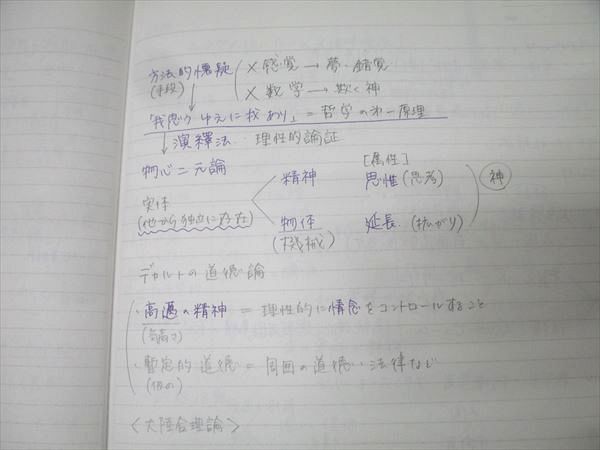 方法的懐疑 × 感覚 → 夢・錯覚
(手段) × 数学 → 欺く神
「我思う ゆえに我あり」= 哲学の第一原理
↓演繹法・理性的論証
[属性]
物心二元論 精神 思惟(思考) 神
実体
(他から独立に存在) 物体 延長 (拡がり)
(機械)
デカルトの道徳論
・高邁の精神 = 理性的に情念をコントロールすること
(気高さ)
・暫定的道徳 = 周囲の道徳・法律など
(仮の)
〈大陸合理論〉